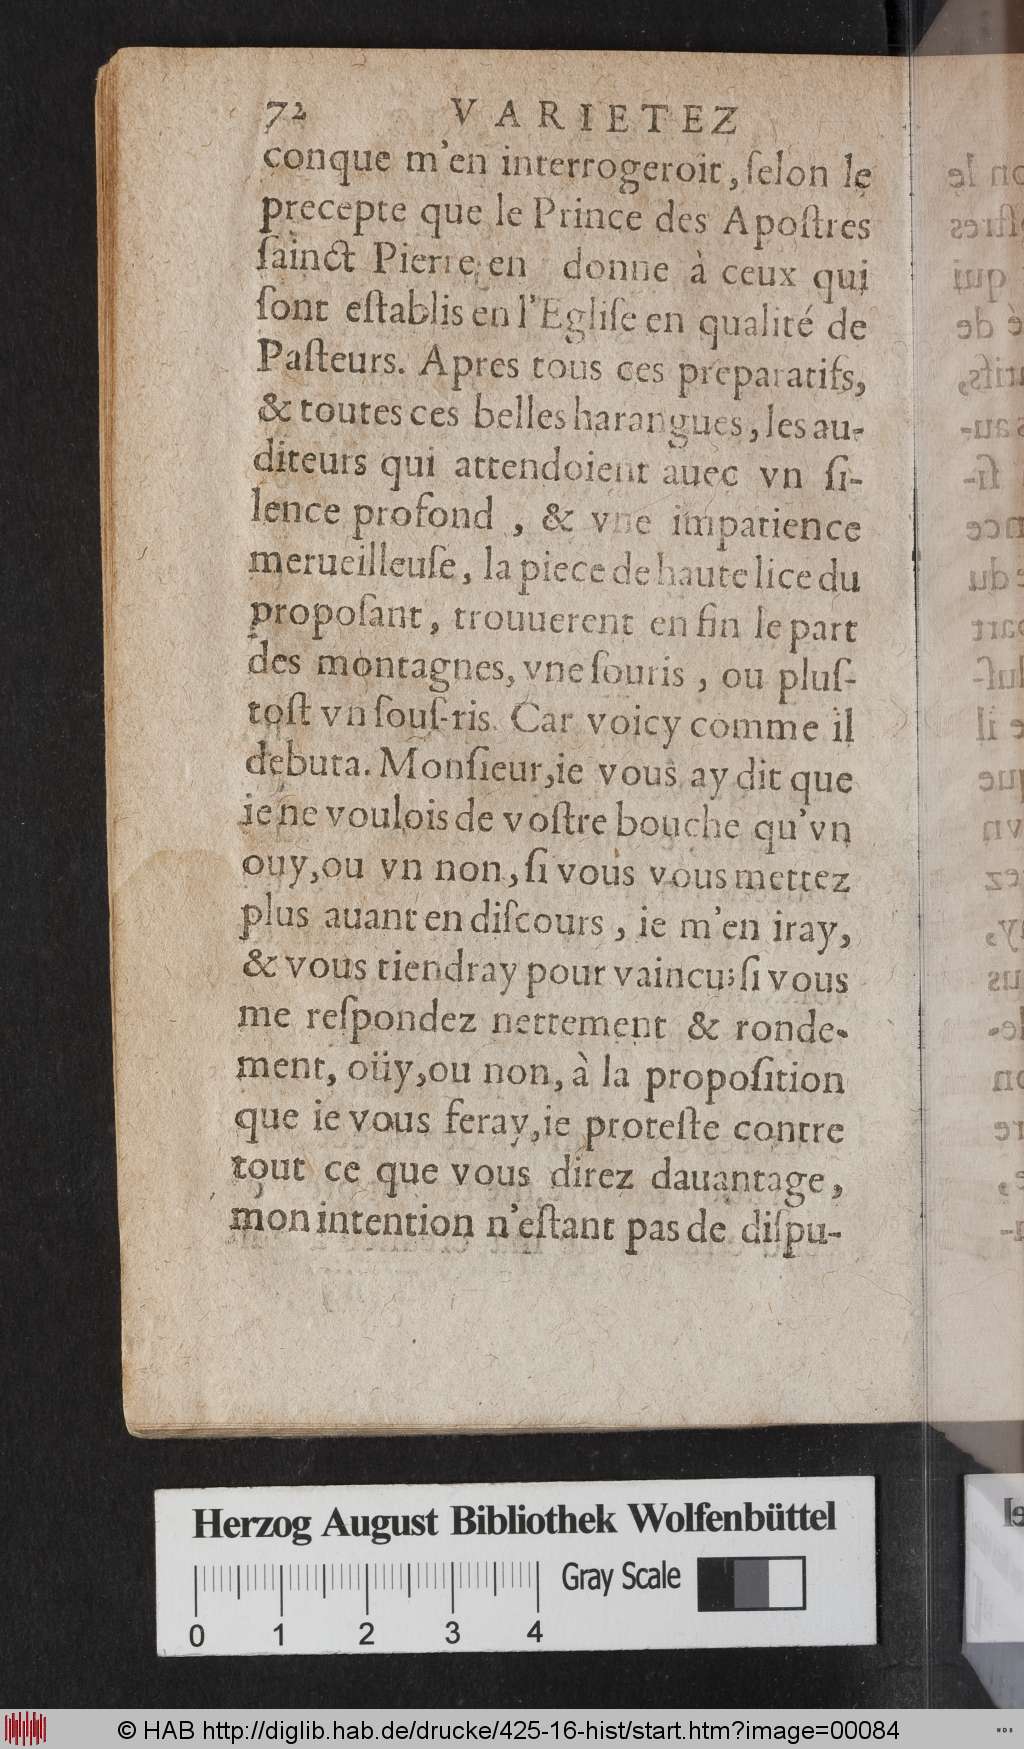 72 VARIETEZ
conque m'en interrogeroit, ſelon le
precepte que le Prince des Apoſtres
ſainct Pierre en donne à ceux qui
ſont eſtablis en l'Egliſe en qualité de
Paſteurs. Apres tous ces preparatifs,
& toutes ces belles harangues, les au-
diteurs qui attendoient auec vn ſi-
lence profond , & vne impatience
merueilleuſe, la piece de haute lice du
propoſant, trouuerent en fin le part
des montagnes, vne ſouris , ou pluſ-
toſt vn ſouſ-ris. Car voicy comme il
debuta. Monſieur, ie vous ay dit que
ie ne voulois de voſtre bouche qu'vn
ouy, ou vn non, ſi vous vous mettez
plus auant en diſcours , ie m'en iray,
& vous tiendray pour vaincu; ſi vous
me reſpondez nettement & ronde-
ment, oüy, ou non, à la propoſition
que ie vous feray, ie proteſte contre
tout ce que vous direz dauantage,
mon intention n'eſtant pas de diſpu-
Herzog August Bibliothek Wolfenbüttel
Gray Scale
0 1 2 3 4
© HAB http://diglib.hab.de/drucke/425-16-hist/start.htm?image=00084